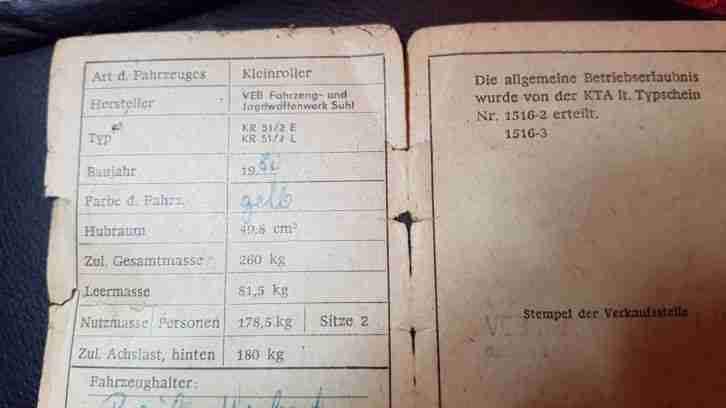 Art d. Fahrzeuges Kleinroller
Hersteller VEB Fahrzeug- und
Jagdwaffenwerk Suhl
Typ KR 51/2 E
KR 51/2 L
Baujahr 19
Farbe d. Fahrz. gelb
Hubraum 49,8 cm³
Zul. Gesamtmasse 260 kg
Leermasse 81,5 kg
Nutzmasse Personen 178,5 kg Sitze 2
Zul. Achslast, hinten 180 kg
Fahrzeughalter:
Die allgemeine Betriebserlaubnis
wurde von der KTA lt. Typschein
Nr. 1516-2 erteilt.
1516-3
Stempel der Verkaufsstelle